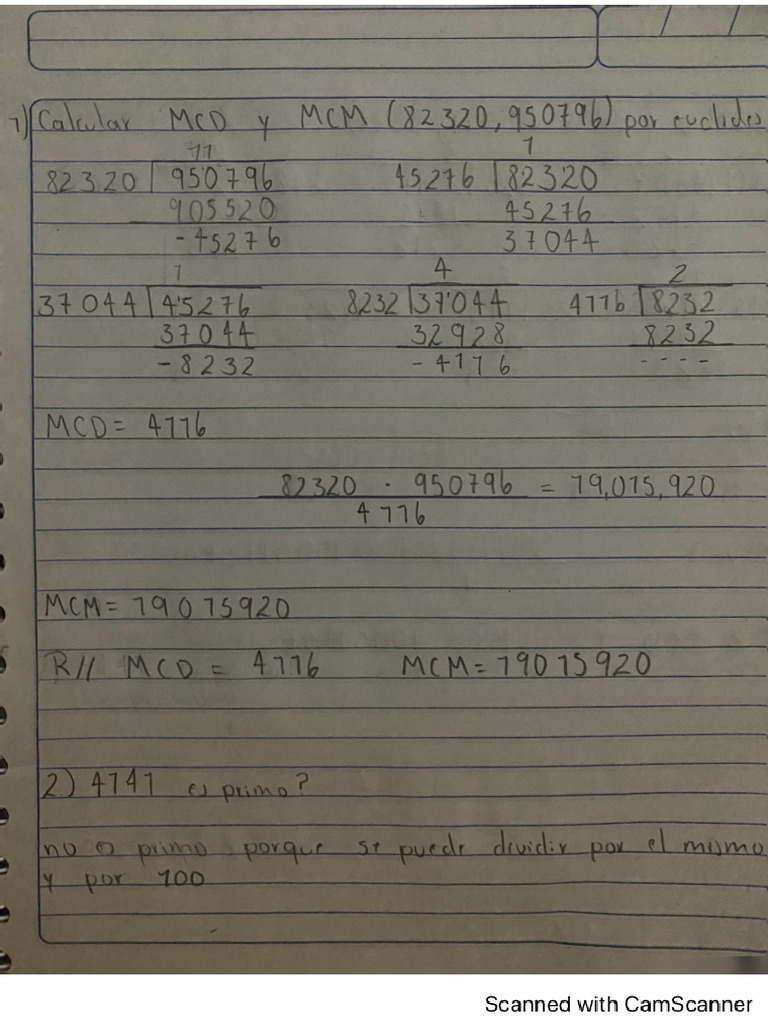 1) Calcular MCD y MCM (82320, 950796) por euclides
11 1
82320 950796 45276 82320
905520 45276
-45276 37044
1 4 2
37044 45276 8232 37044 4116 8232
37044 32928 8232
-8232 -4116 ----
MCD= 4116
82320 · 950796 = 19,015,920
4116
MCM= 19015920
R// MCD = 4116 MCM= 19015920
2) 4141 es primo?
no es primo porque se puede dividir por el mismo
y por 100
Scanned with CamScanner